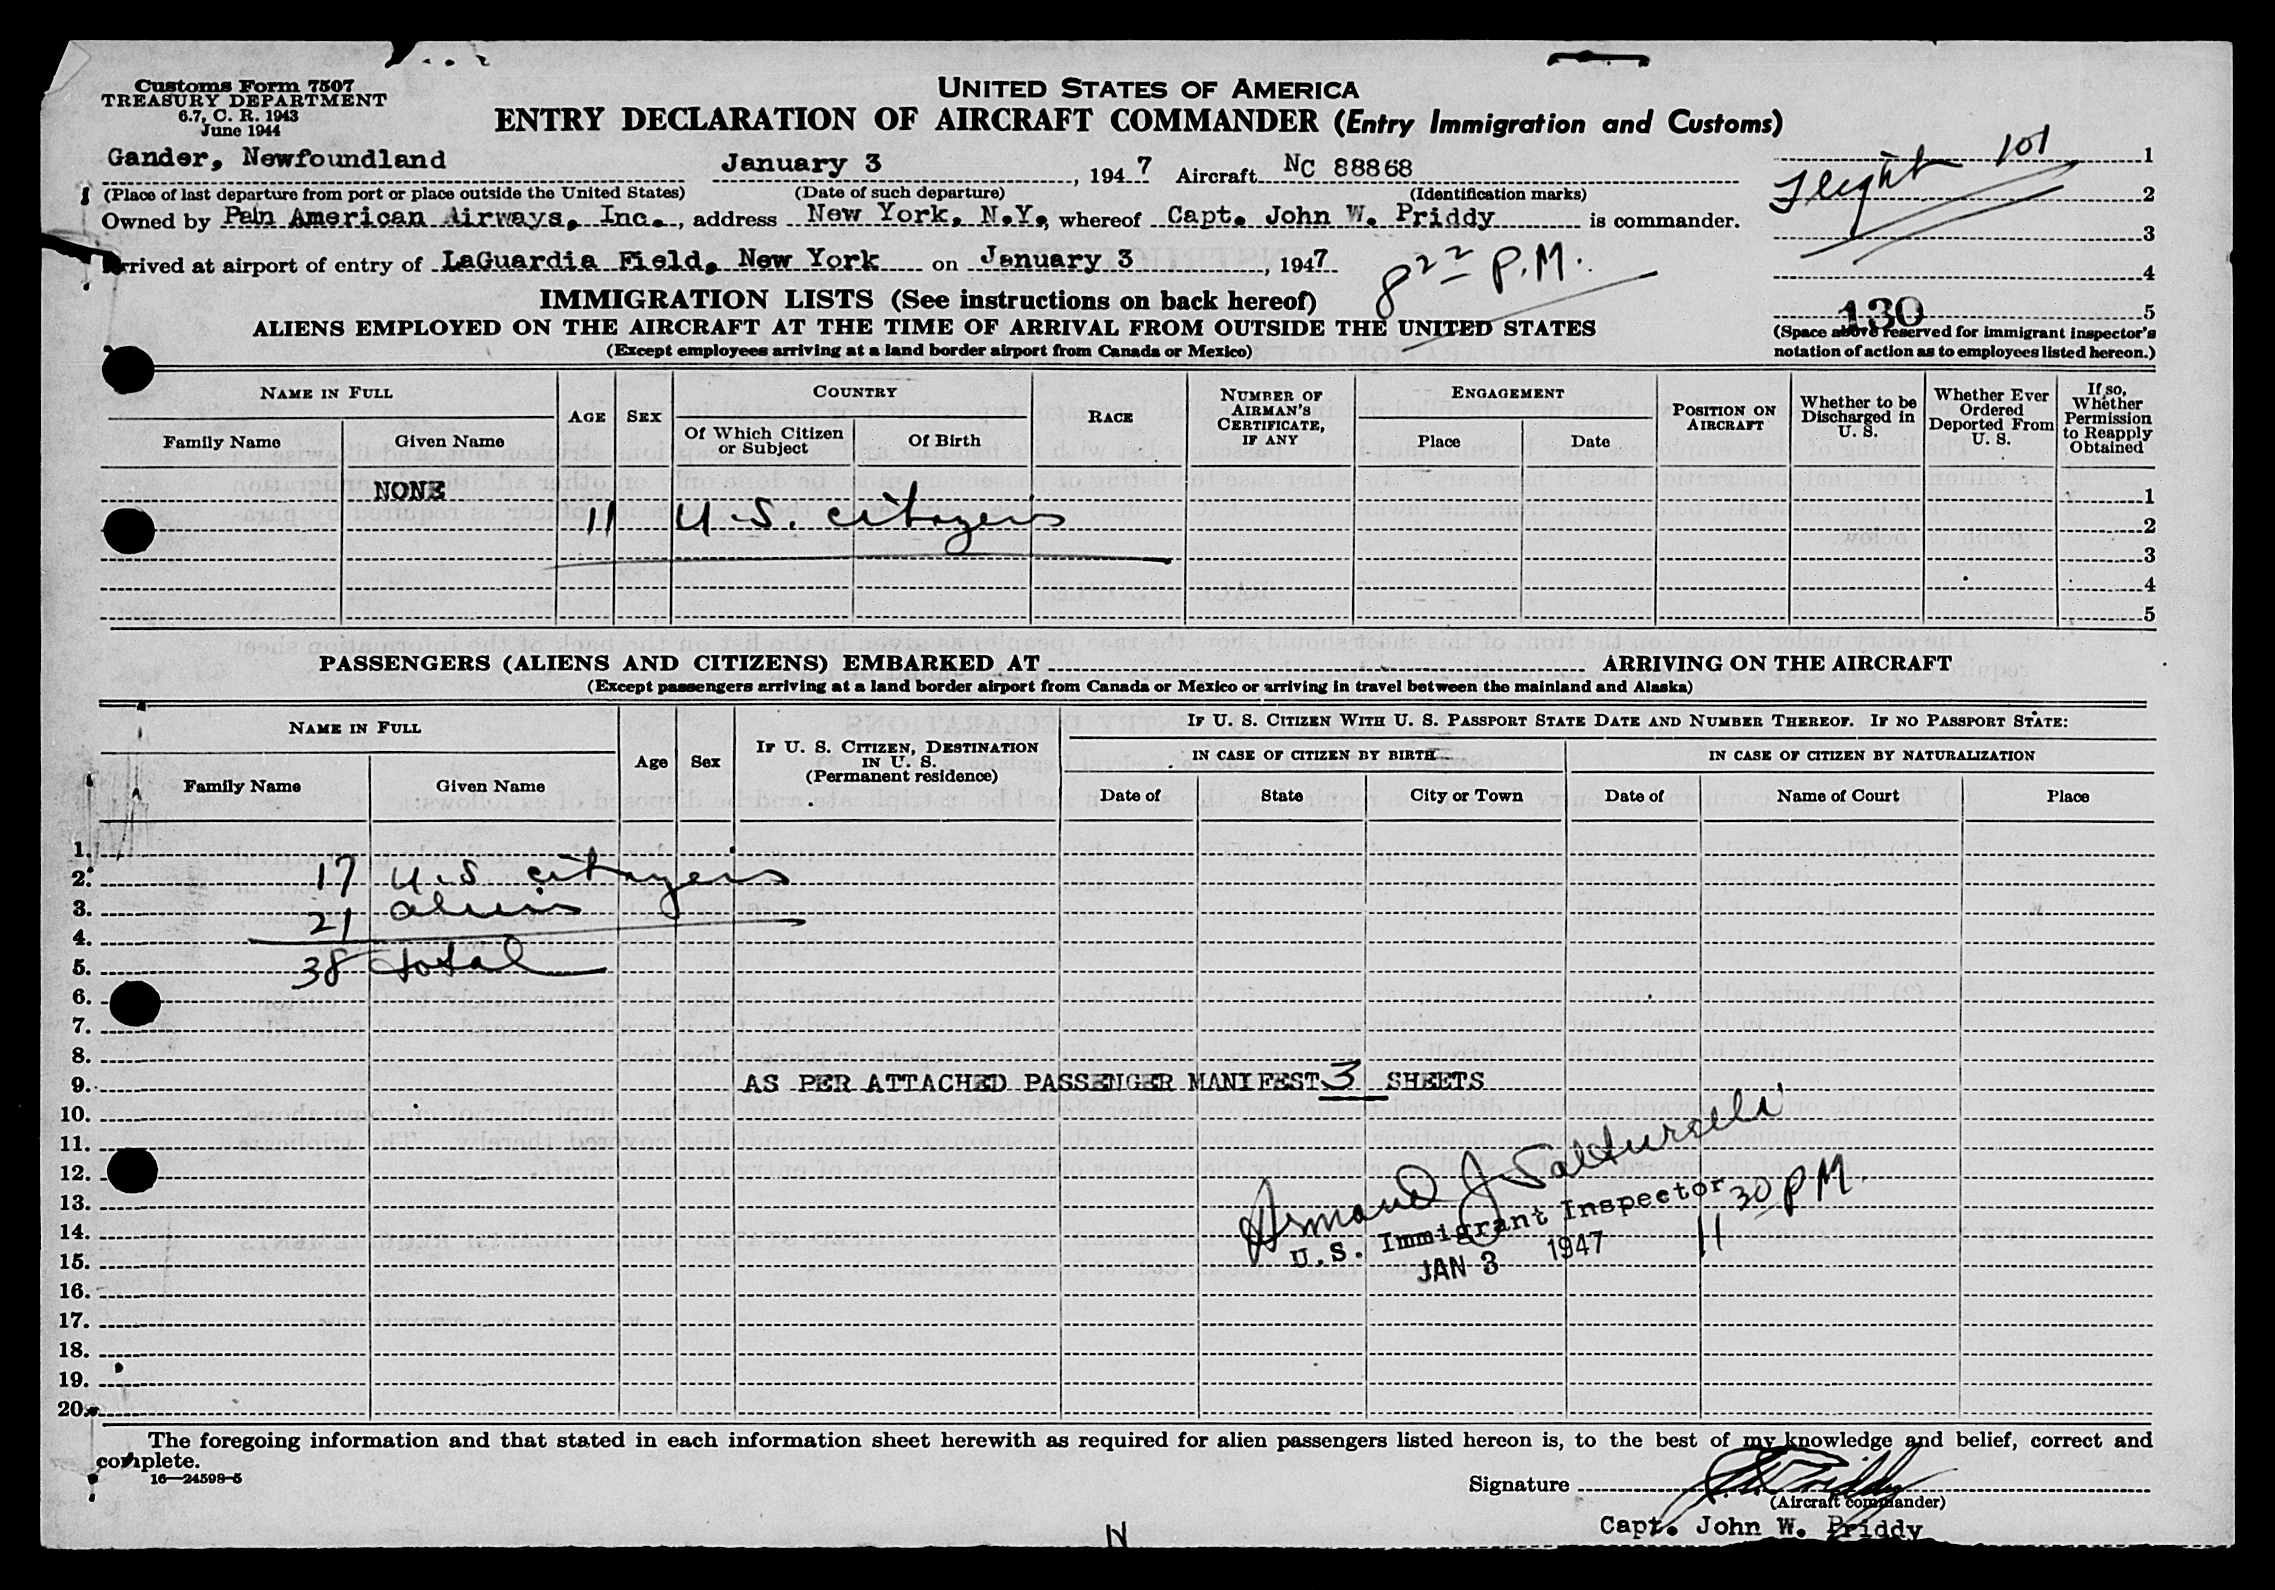 Customs Form 7507
TREASURY DEPARTMENT
6.7, C. R. 1943
June 1944
UNITED STATES OF AMERICA
ENTRY DECLARATION OF AIRCRAFT COMMANDER (Entry Immigration and Customs)
Gander, Newfoundland January 3, 1947 Aircraft NC 88868
(Place of last departure from port or place outside the United States) (Date of such departure) (Identification marks)
Owned by Pan American Airways, Inc., address New York, N.Y, whereof Capt. John W. Priddy is commander.
Arrived at airport of entry of LaGuardia Field, New York on January 3, 1947
8 22 P.M.
Flight 101
1
2
3
4
130 5
(Space above reserved for immigrant inspector's
notation of action as to employees listed hereon.)
IMMIGRATION LISTS (See instructions on back hereof)
ALIENS EMPLOYED ON THE AIRCRAFT AT THE TIME OF ARRIVAL FROM OUTSIDE THE UNITED STATES
(Except employees arriving at a land border airport from Canada or Mexico)
NAME IN FULL
Family Name Given Name
AGE
SEX
COUNTRY
Of Which Citizen or Subject Of Birth
RACE
NUMBER OF AIRMAN'S CERTIFICATE, IF ANY
ENGAGEMENT
Place Date
POSITION ON AIRCRAFT
Whether to be Discharged in U. S.
Whether Ever Ordered Deported From U. S.
If so, Whether Permission to Reapply Obtained
NONE 1
11 U.S. citizens 2
3
4
5
PASSENGERS (ALIENS AND CITIZENS) EMBARKED AT ARRIVING ON THE AIRCRAFT
(Except passengers arriving at a land border airport from Canada or Mexico or arriving in travel between the mainland and Alaska)
NAME IN FULL
Family Name Given Name
Age
Sex
IF U. S. CITIZEN, DESTINATION IN U. S.
(Permanent residence)
IF U. S. CITIZEN WITH U. S. PASSPORT STATE DATE AND NUMBER THEREOF. IF NO PASSPORT STATE:
IN CASE OF CITIZEN BY BIRTH IN CASE OF CITIZEN BY NATURALIZATION
Date of State City or Town Date of Name of Court Place
1.
2. 17 U.S citizens
3. 21 aliens
4.
5. 38 total
6.
7.
8.
9. AS PER ATTACHED PASSENGER MANIFEST 3 SHEETS
10.
11.
12. Armand J.
13. U.S. Immigrant Inspector
14. JAN 3 1947 11 30 PM.
15.
16.
17.
18.
19.
20.
The foregoing information and that stated in each information sheet herewith as required for alien passengers listed hereon is, to the best of my knowledge and belief, correct and
complete.
16—24598-5
Signature
(Aircraft commander)
Capt. John W. Priddy
N